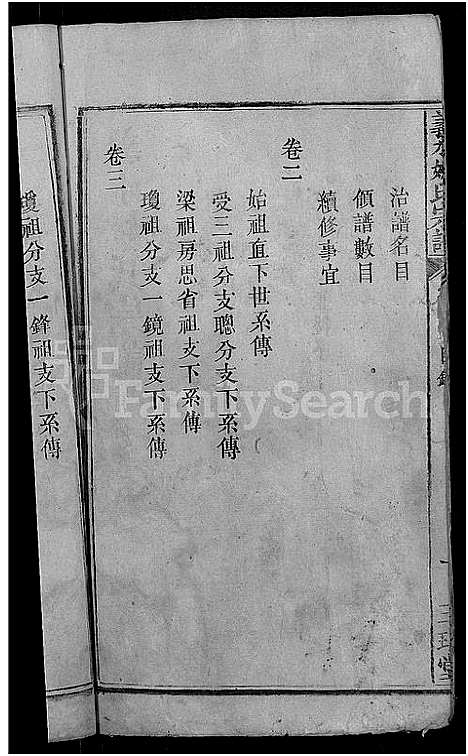 治譜名目
領譜數目
續修事宜
卷二
始祖直下世系傳
受三祖分支聰分支下系傳
梁祖房思省祖支下系傳
瓊祖分支一鏡祖支下系傳
卷三
瓊祖分支一鋒祖支下系傳
FamilySearch